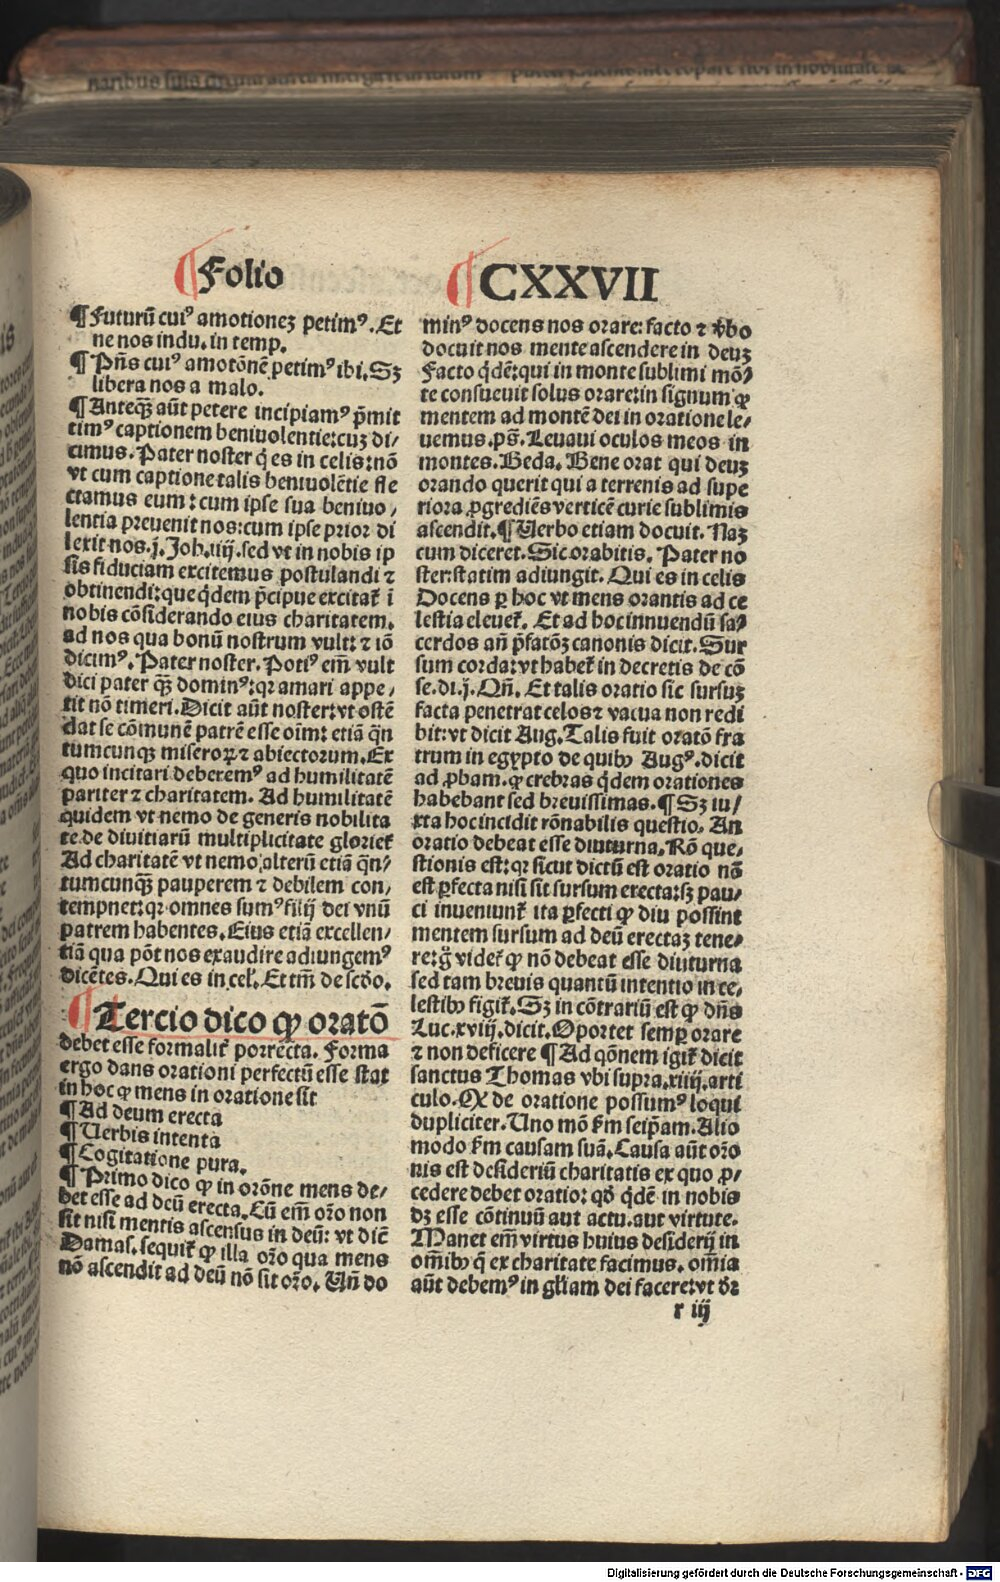 ¶Folio
¶CXXVII
¶Futurū cuiꝰ amotioneꝫ petimꝰ. Et
ne nos indu. in temp.
¶Pn̄s cuiꝰ amotōnē petimꝰ ibi. Sꝫ
libera nos a malo.
¶Anteqꝫ aūt petere incipiamꝰ p̄mit
timꝰ captionem beniuolentie: cuꝫ di/
cimus. Pater noster q̇ es in celis: nō
vt cum captione talis beniuolētie fle
ctamus eum: cum ipse sua beniuo/
lentia preuenit nos: cum ipse prior di
lexit nos. j. Joh. iiij. sed vt in nobis ip
sis fiduciam excitemus postulandi ⁊
obtinendi: que q̇dem p̄cipue excitat᷑ ī
nobis cōsiderando eius charitatem.
ad nos qua bonū nostrum vult: ⁊ iō
dicimꝰ. Pater noster. Potiꝰ em̄ vult
dici pater qꝫ̄ dominꝰ: qꝛ amari appe/
tit nō timeri. Dicit aūt noster: vt ostē
dat se cōmunē patrē esse oim: etiā q̄n
tumcunqꝫ miseroꝝ ⁊ abiectorum. Ex
quo incitari deberemꝰ ad humilitatē
pariter ⁊ charitatem. Ad humilitatē
quidem vt nemo de generis nobilita
te. de diuitiarū multiplicitate gloriet᷑
Ad charitatē vt nemo alterū etiā q̄n/
tumcunqꝫ pauperem ⁊ debilem con/
tempnet: qꝛ omnes sumꝰ filij dei vnū
patrem habentes. Eius etiā excellen/
tiā qua pōt nos exaudire adiungemꝰ
dicētes. Qui es in cel̓. Et tm̄ de scd̓o.
¶Tercio dico ꝙ oratō
debet esse formalit᷑ porrecta. Forma
ergo dans orationi perfectū esse stat
in hoc ꝙ mens in oratione sit
¶Ad deum erecta
¶Uerbis intenta
¶Cogitatione pura.
¶Primo dico ꝙ in orōne mens de/
bet esse ad deū erecta. Cū em̄ or̄o non
sit nisi mentis ascensus in deū: vt dic̄
Damas. sequit᷑ ꝙ illa or̄o qua mens
nō ascendit ad deū nō sit or̄o. Un̄ do
minꝰ docens nos orare: facto ⁊ v̓bo
docuit nos mente ascendere in deuꝫ
Facto q̇dē: qui in monte sublimi mō/
te consueuit solus orare: in signum ꝙ
mentem ad montē dei in oratione le/
uemus. ps̄. Leuaui oculos meos in
montes. Beda. Bene orat qui deuꝫ
orando querit qui a terrenis ad supe
riora ꝓgrediēs verticē curie sublimis
ascendit. ¶Uerbo etiam docuit. Naꝫ
cum diceret. Sic orabitis. Pater no
ster: statim adiungit. Qui es in celis
Docens ꝑ hoc vt mens orantis ad ce
lestia eleuet᷑. Et ad hoc innuendū sa/
cerdos an̄ p̄fatōꝫ canonis dicit. Sur
sum corda: vt habet᷑ in decretis de cō
se. di. j. Qn̄. Et talis oratio sic sursuꝫ
facta penetrat celos ⁊ vacua non redi
bit: vt dicit Aug. Talis fuit oratō fra
trum in egypto de quibꝰ Augꝰ. dicit
ad ꝓbam. ꝙ crebras q̇dem orationes
habebant sed breuissimas. ¶Sꝫ iu/
xta hoc incidit rōnabilis questio. An
oratio debeat esse diuturna. Rō que/
stionis est: qꝛ sicut dictū est oratio nō
est ꝑfecta nisi sit sursum erecta: sꝫ pau/
ci inueniunt᷑ ita ꝑfecti ꝙ diu possint
mentem sursum ad deū erectaꝫ tene/
re: g̊ videt᷑ ꝙ nō debeat esse diuturna
sed tam breuis quantū intentio in ce/
lestibꝰ figit᷑. Sꝫ in cōtrariū est ꝙ dn̄s
Luc. xviij. dicit. Oportet semꝑ orare
⁊ non deficere ¶Ad qōnem igit᷑ dicit
sanctus Thomas vbi supra. xiiij. arti
culo. Ꝙ de oratione possumꝰ loqui
dupliciter. Uno mō ẜm seip̄am. Alio
modo ẜm causam suā. Causa aūt or̄o
nis est desideriū charitatis ex quo ꝓ/
cedere debet oratio: qd̓ q̇dē in nobis
dꝫ esse cōtinuū aut actu. aut virtute.
Manet em̄ virtus huius desiderij in
om̄ibꝰ q̄ ex charitate facimus. om̄ia
aūt debemꝰ in gl̓iam dei facere: vt d̓ꝛ
r iij
Digitalisierung gefördert durch die Deutsche Forschungsgemeinschaft - DFG